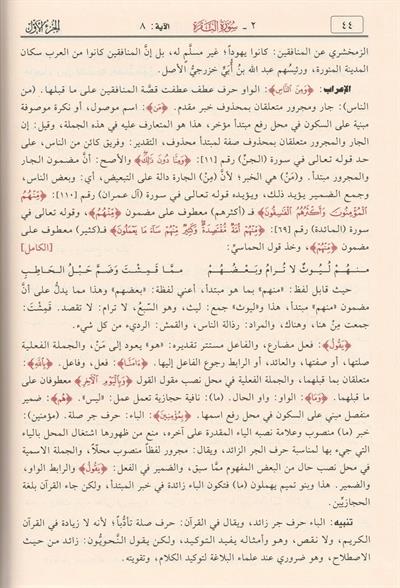 ٤٤
٢ - سُورَةُ البَقَرَةِ
الآية: ٨
الجزء الأول
الزمخشري عن المنافقين: كانوا يهوداً؛ غير مسلَّم له، بل إنَّ المنافقين كانوا من العرب سكان
المدينة المنورة، ورئيسُهم عبد الله بنُ أُبَيٍّ خزرجيُّ الأصل.
الإعراب: ﴿وَمِنَ النَّاسِ﴾: الواو حرف عطف عطفت قصَّة المنافقين على ما قبلها. (من
الناس): جار ومجرور متعلقان بمحذوف خبر مقدم. ﴿مَن﴾: اسم موصول، أو نكرة موصوفة
مبنية على السكون في محل رفع مبتدأ مؤخر، هذا هو المتعارف عليه في هذه الجملة، وقيل: إن
الجار والمجرور متعلقان بمحذوف صفة لمبتدأ محذوف، التقدير: وفريق كائن من الناس، على
حد قوله تعالى في سورة (الجنِّ) رقم [١١]: ﴿وَمِنَّا دُونَ ذَلِكَ﴾ والأصح: أنَّ مضمون الجار
والمجرور مبتدأ. و(مَنْ) هي الخبر؛ لأنَّ (مِنْ) الجارة دالة على التبعيض، أي: وبعض الناس،
وجمع الضمير يؤيد ذلك، ويؤيده قوله تعالى في سورة (آل عمران) رقم [١١٠]: ﴿مِنْهُمُ
الْمُؤْمِنُونَ وَأَكْثَرُهُمُ الْفَاسِقُونَ﴾ فـ (أكثرهم) معطوف على مضمون ﴿مِنْهُمُ﴾، وقوله تعالى في
سورة (المائدة) رقم [٦٩]: ﴿مِنْهُمْ أُمَّةٌ مُقْتَصِدَةٌ وَكَثِيرٌ مِنْهُمْ سَاءَ مَا يَعْمَلُونَ﴾ فـ(كثير) معطوف على
مضمون ﴿مِنْهُمْ﴾، وخذ قول الحماسيِّ: [الكامل]
مِنْهُمْ لُيُوثٌ لَا تُرَامُ وَبَعْضُهُمْ مِمَّا قَمِشْتَ وَضَمَّ حَبْلُ الحَاطِبِ
حيث قابل لفظ: «منهم» بما هو مبتدأ، أعني لفظة: «بعضهم» وهذا مما يدلُّ على أنَّ
مضمون «منهم» مبتدأ، هذا و«ليوث» جمع: ليث، وهو السَّبُعُ، لا ترام: لا تقصد. قَمِشْتَ:
جمعت مِنْ هنا، وهناك، والمراد: رذالة الناس، والقمش: الرديء من كل شيء.
﴿يَقُولُ﴾: فعل مضارع، والفاعل مستتر تقديره: «هو» يعود إلى مَنْ، والجملة الفعلية
صلتها، أو صفتها، والعائد، أو الرابط رجوع الفاعل إليها. ﴿ءَامَنَّا﴾: فعل، وفاعل. ﴿بِاللَّهِ﴾:
متعلقان بما قبلهما، والجملة الفعلية في محل نصب مقول القول ﴿وَبِالْيَوْمِ الْآخِرِ﴾ معطوفان على
ما قبلهما. ﴿وَمَا﴾: الواو: واو الحال. (ما): نافية حجازية تعمل عمل: «ليس». ﴿هُم﴾: ضمير
منفصل مبني على السكون في محل رفع اسمها. ﴿بِمُؤْمِنِينَ﴾: الباء: حرف جر صلة. (مؤمنين):
خبر (ما) منصوب وعلامة نصبه الياء المقدرة على آخره، منع من ظهورها اشتغال المحل بالياء
التي جيء بها لمناسبة حرف الجر الزائد، ويقال: مجرور لفظاً منصوب محلاً، والجملة الاسمية
في محل نصب حال من البعض المفهوم ممَّا سبق، والضمير في الفعل: ﴿يَقُولُ﴾ والرابط الواو،
والضمير. هذا وبنو تميم يهملون (ما) فتكون الباء زائدة في خبر المبتدأ، ولكن جاء القرآن بلغة
الحجازيِّين.
تنبيه: الباء حرف جر زائد، ويقال في القرآن: حرف صلة تأدُّباً؛ لأنه لا زيادة في القرآن
الكريم، ولا نقص، وهو وأمثاله يفيد التوكيد، ولكن يقول النَّحويُّون: زائد من حيث
الاصطلاح، وهو ضروري عند علماء البلاغة لتوكيد الكلام، وتقويته.